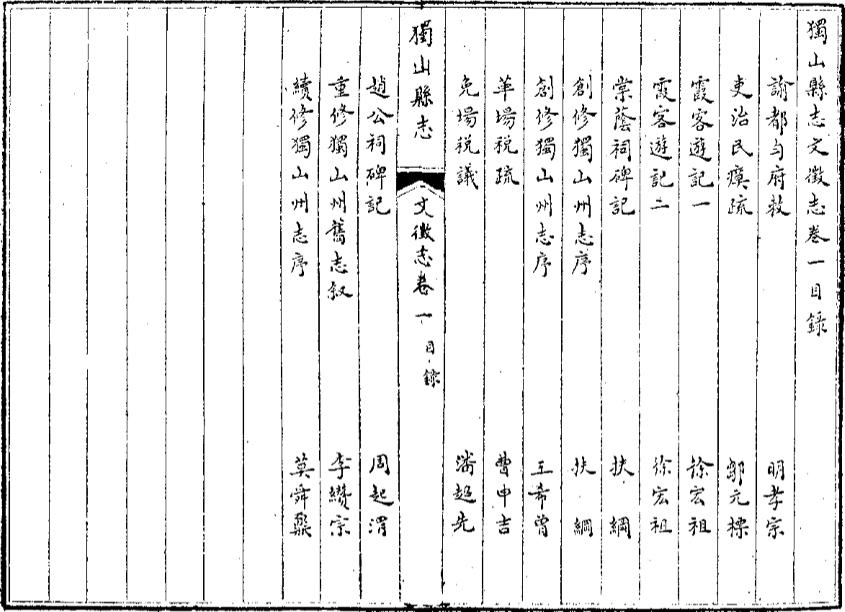 獨山縣志文徵志卷一目錄
諭都勻府敕 明孝宗
吏治民瘼疏 鄒元標
霞客遊記一 徐宏祖
霞客遊記二 徐宏祖
棠蔭祠碑記 扶綱
創修獨山州志序 扶綱
創修獨山州志序 王希曾
革場稅疏 曹申吉
免場稅議 潘超先
獨山縣志 文徵志卷一 目錄
趙公祠碑記 周起渭
重修獨山州舊志叙 李纘宗
續修獨山州志序 莫舜鼐